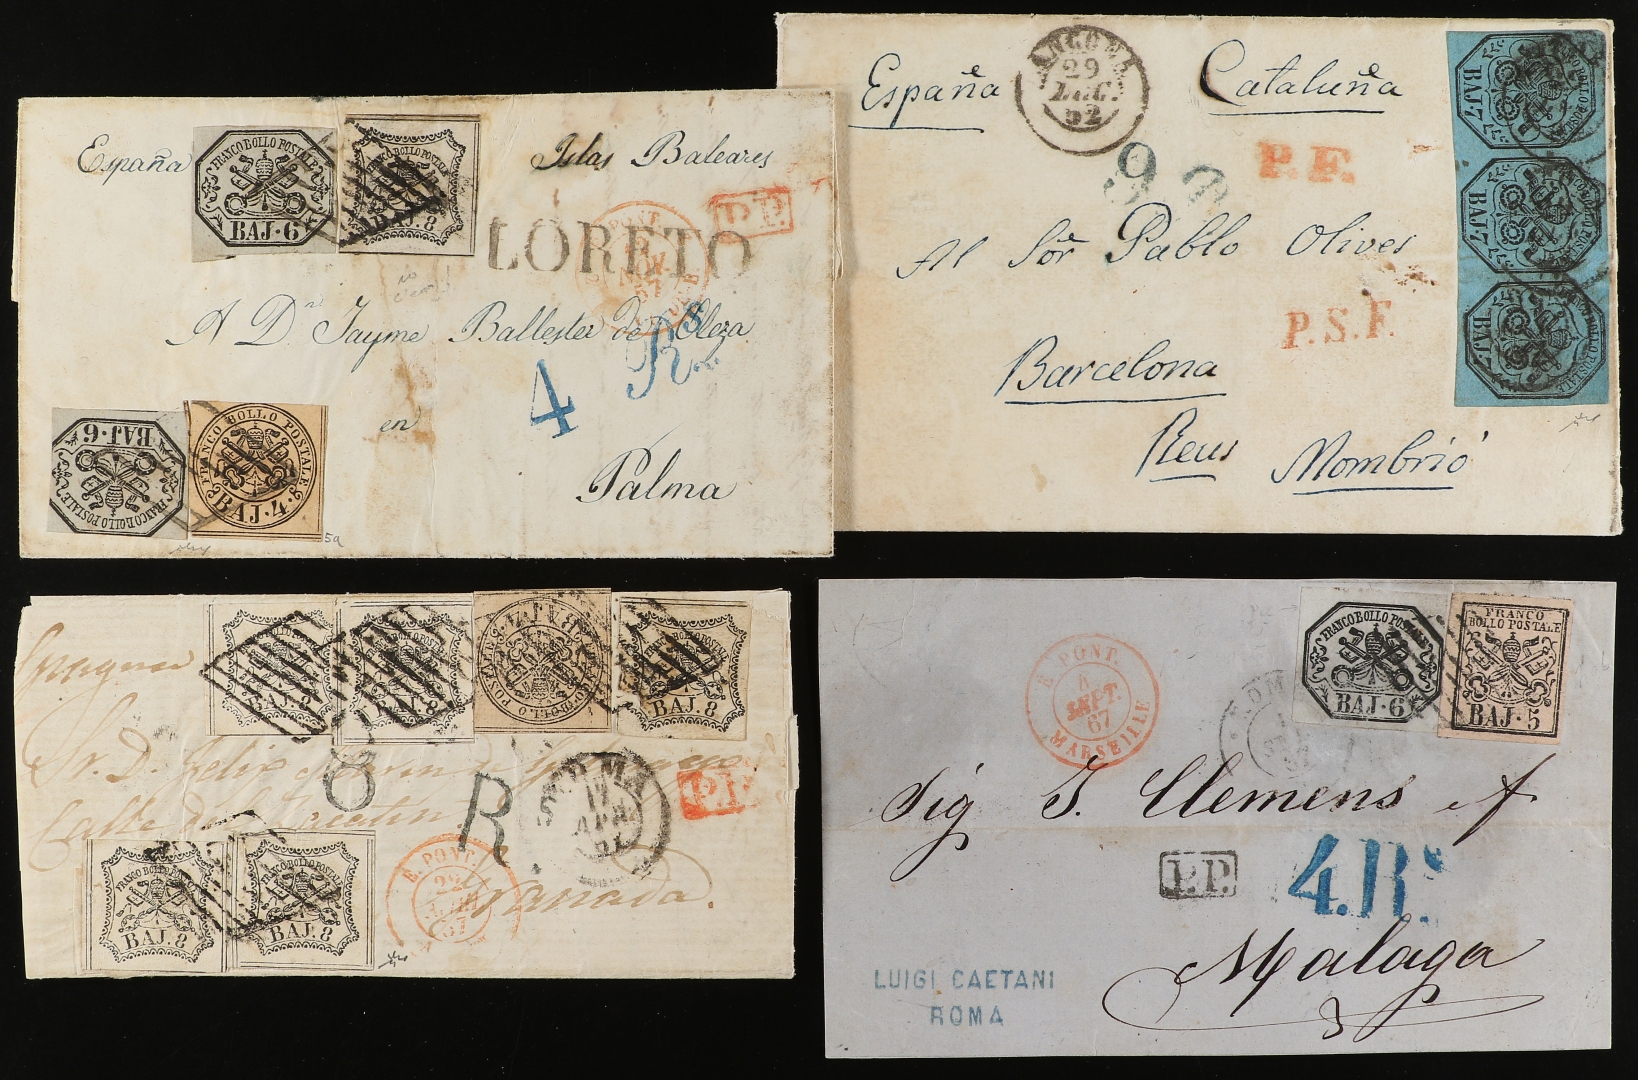 España
Islas Baleares
FRANCO BOLLO POSTALE
BAJ·6
FRANCO BOLLO POSTALE
BAJ·8
P.P.
LORETO
PONT.
A Dn Jayme Ballester de Oleza
4 Rs
en
Palma
BAJ·6
FRANCO BOLLO POSTALE
FRANCO BOLLO POSTALE
BAJ·4
5a
España
Cataluña
ANCONA
29
DEC.
52
P.F.
Al Sor Pablo Olives
P.S.F.
Barcelona
Reus
Mombrió
BAJ·7
BAJ·7
BAJ·7
BAJ·8
BAJ·8
BAJ·8
Sr. D. Felix
8
R
ROMA
17
APR
P.P.
E. PONT.
57
Granada.
FRANCO BOLLO POSTALE
BAJ·8
FRANCO BOLLO POSTALE
BAJ·8
FRANCO BOLLO POSTALE
BAJ·6
FRANCO
BOLLO POSTALE
BAJ·5
E. PONT.
4
SEPT.
67
MARSEILLE
Sig J. Clemens
P.P.
4.Rs.
Malaga
LUIGI CAETANI
ROMA